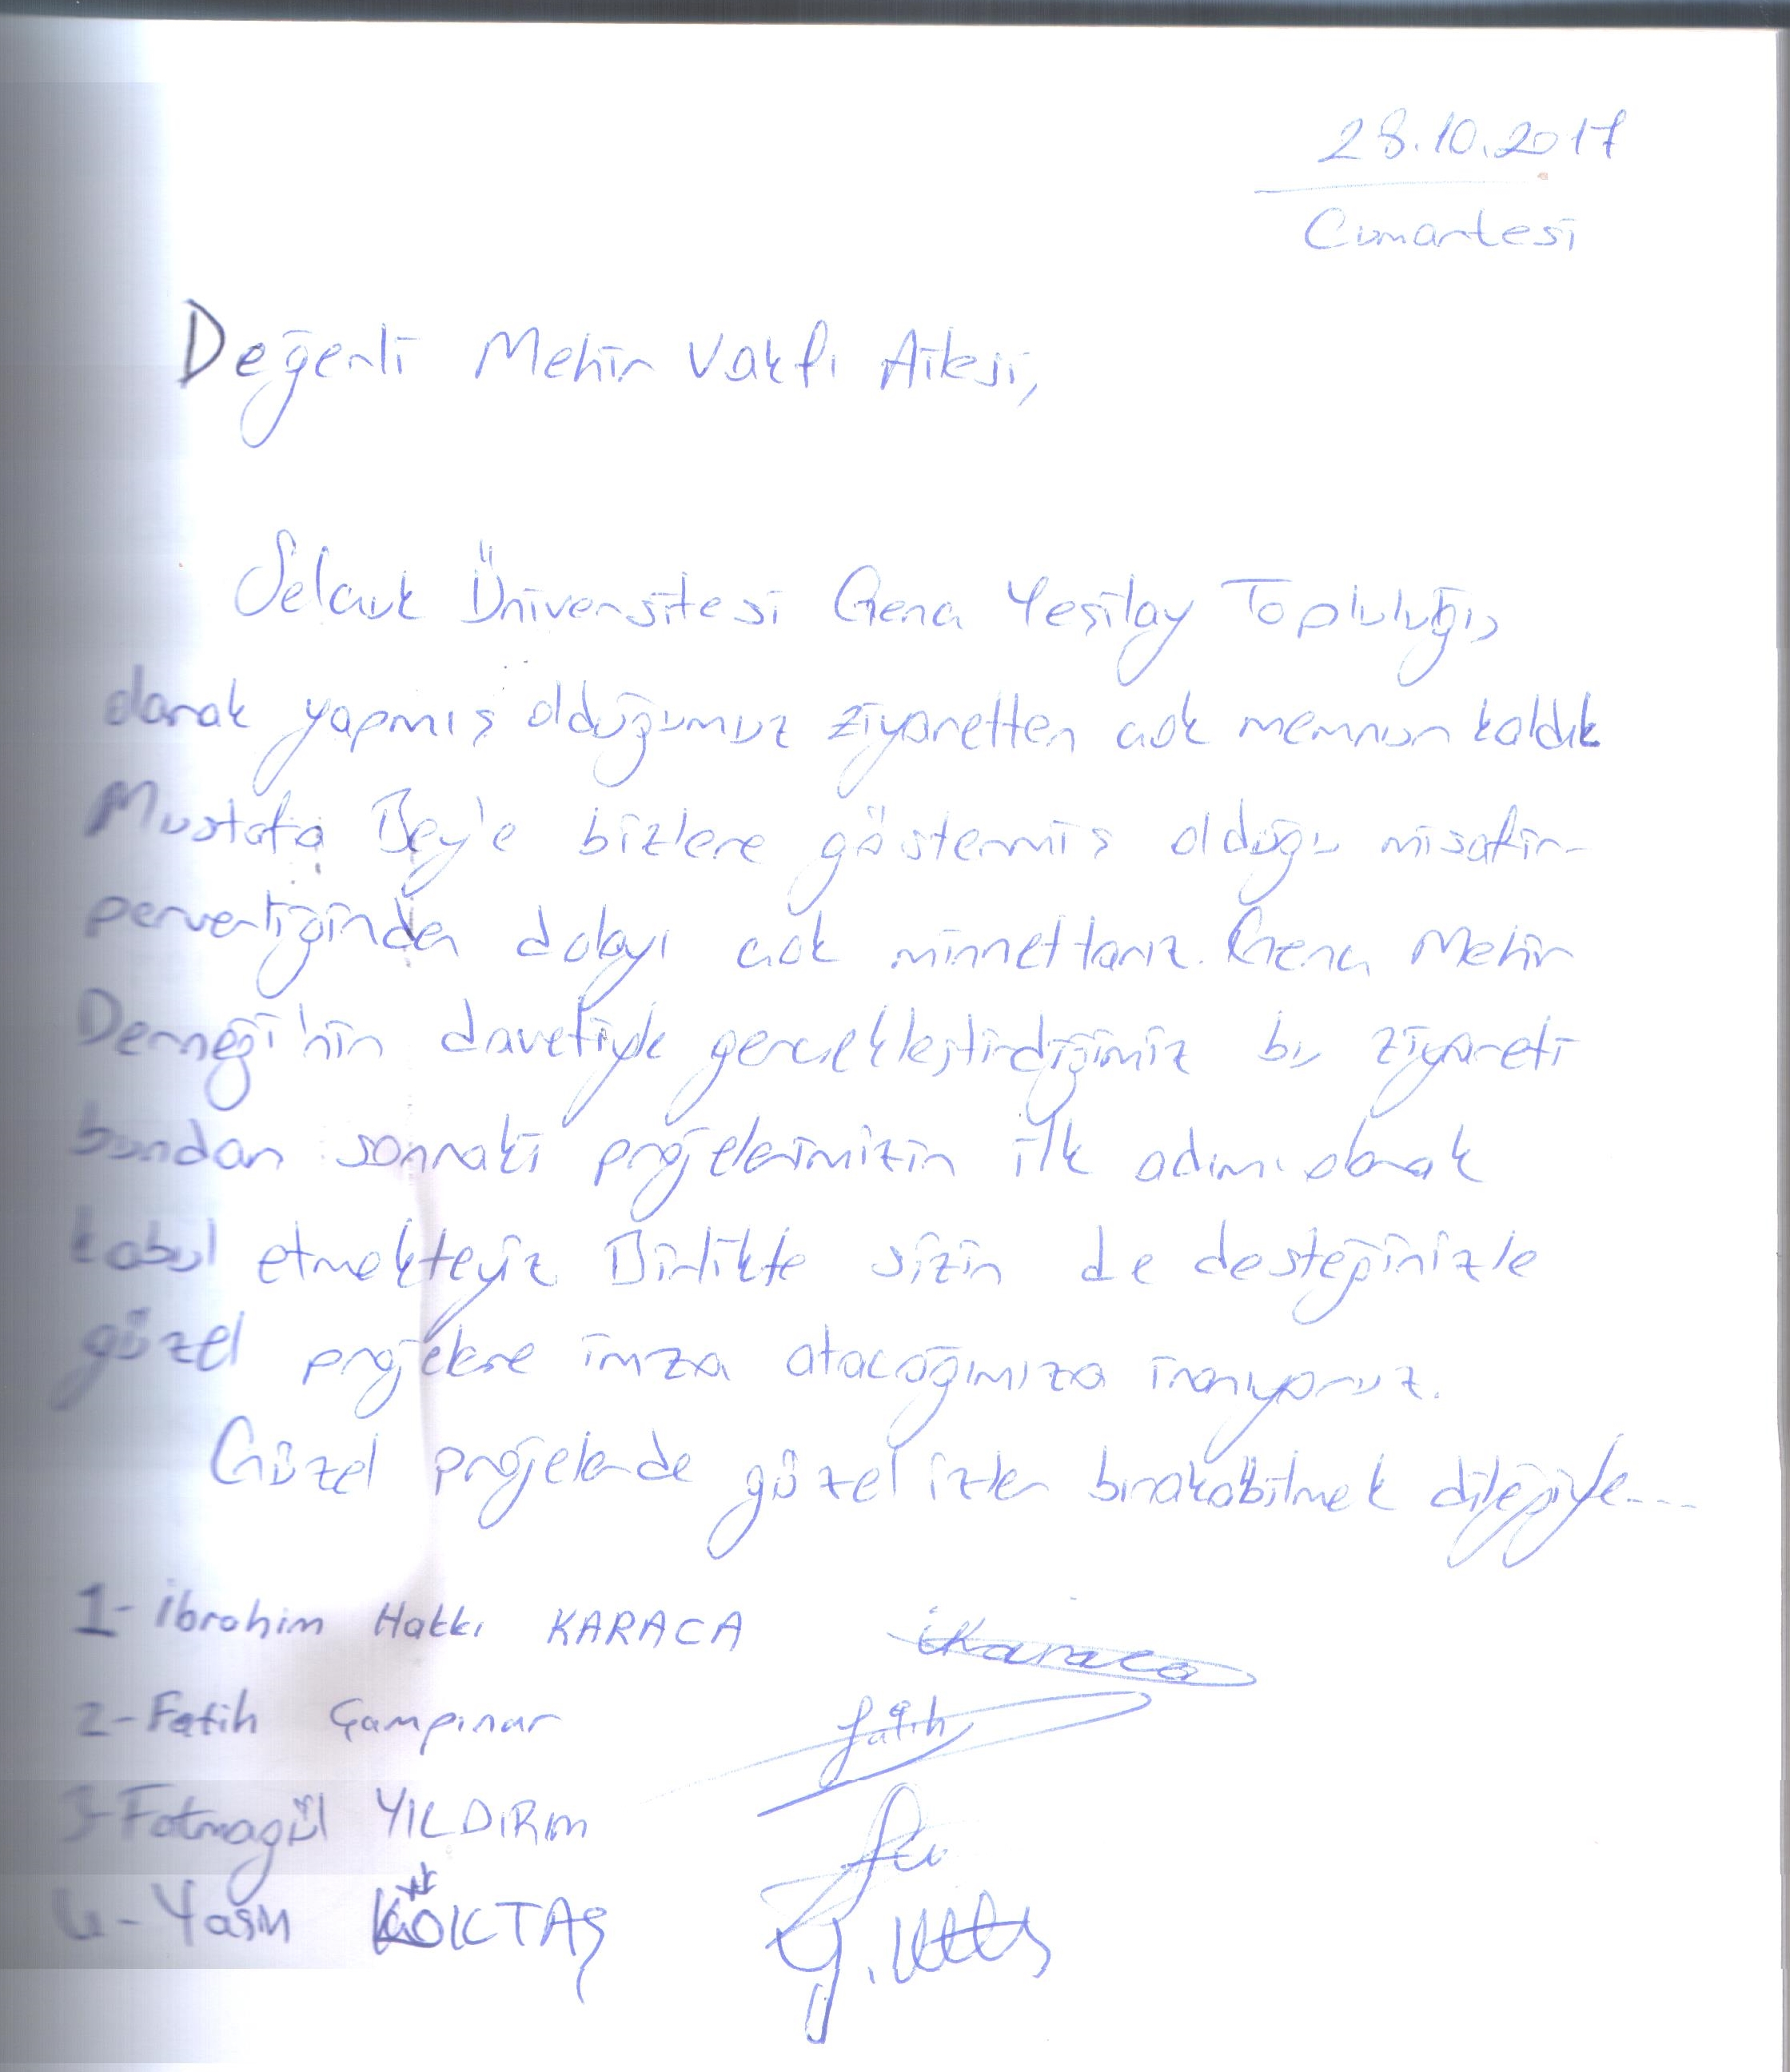 28.10.2017
Cumartesi
Değerli Mehir Vakfı Ailesi,
Selçuk Üniversitesi Genç Yeşilay Topluluğu
olarak yapmış olduğumuz ziyaretten çok memnun kaldık
Mustafa Bey'e bizlere göstermiş olduğu misafir-
perverliğinden dolayı çok minnettarız. Genç Mehir
Derneği'nin davetiyle gerçekleştirdiğimiz bu ziyareti
bundan sonraki projelerimizin ilk adımı olarak
kabul etmekteyiz Birlikte sizin de desteğinizle
güzel projelere imza atacağımıza inanıyoruz.
Güzel projelerde güzel izler bırakabilmek dileğiyle....
1- İbrahim Hakkı KARACA iKaraca
2- Fatih Çampınar fatih
3- Fatmagül YILDIRIM
4- Yasin KÖKTAŞ